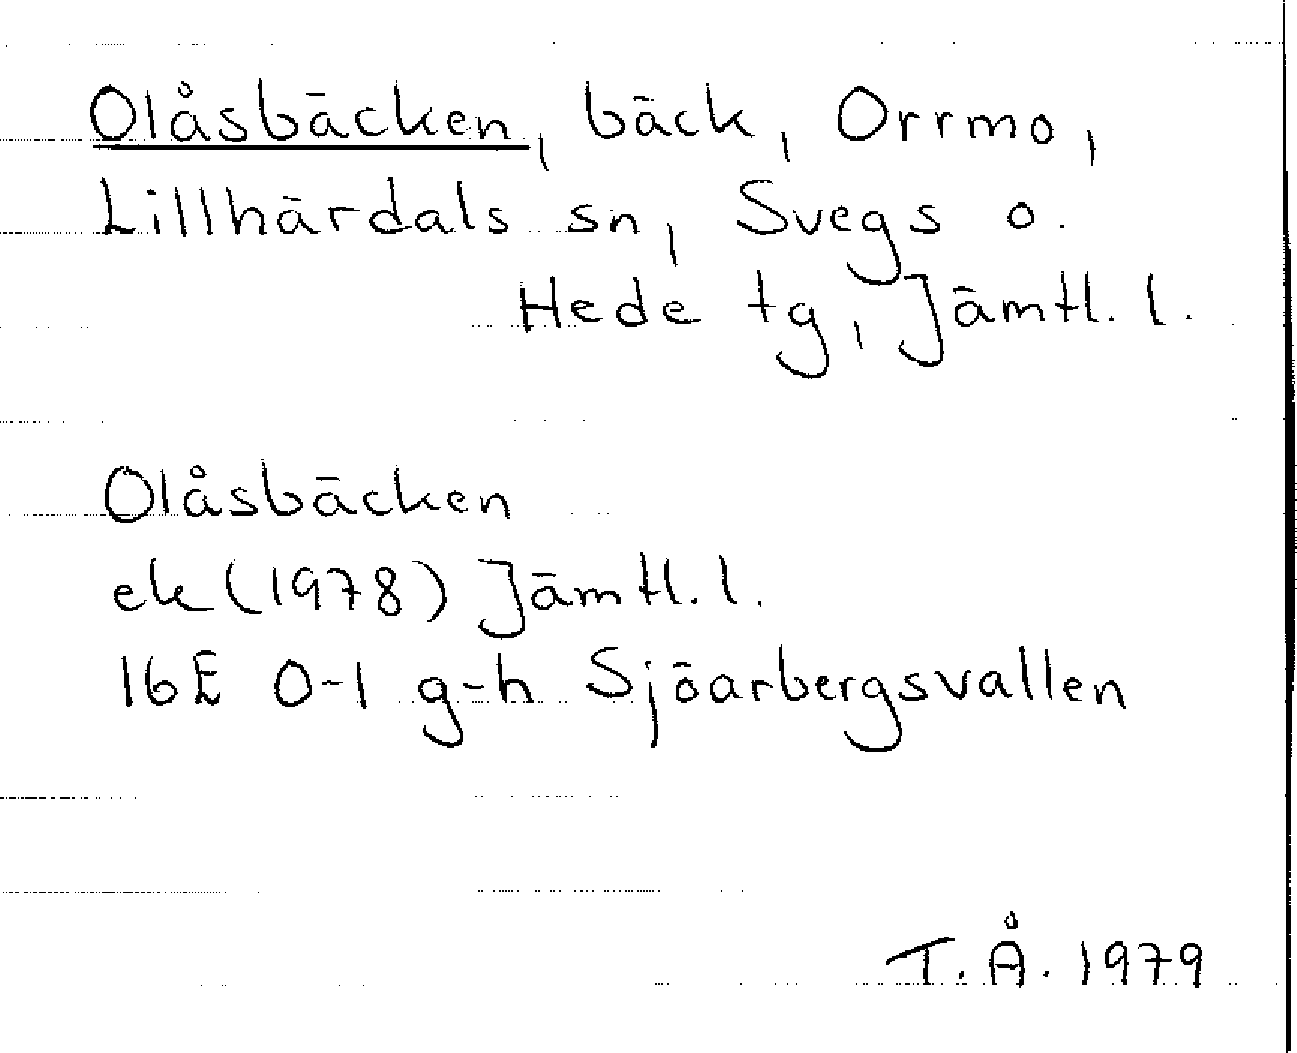 Olåsbäcken, bäck, Orrmo,
Lillhärdals sn, Svegs o.
Hede tg, Jämtl. l.
Olåsbäcken
ek (1978) Jämtl. l.
16E 0-1 g-h Sjöarbergsvallen
T. Å. 1979